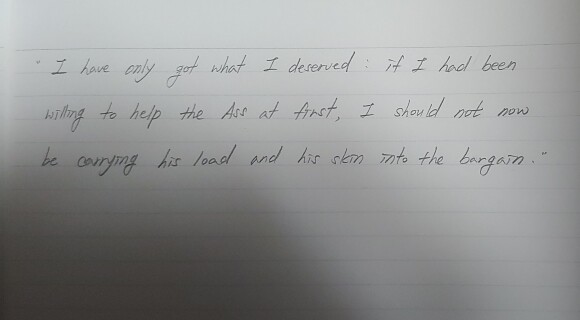 "I have only got what I deserved : if I had been
willing to help the Ass at first, I should not now
be carrying his load and his skin into the bargain."